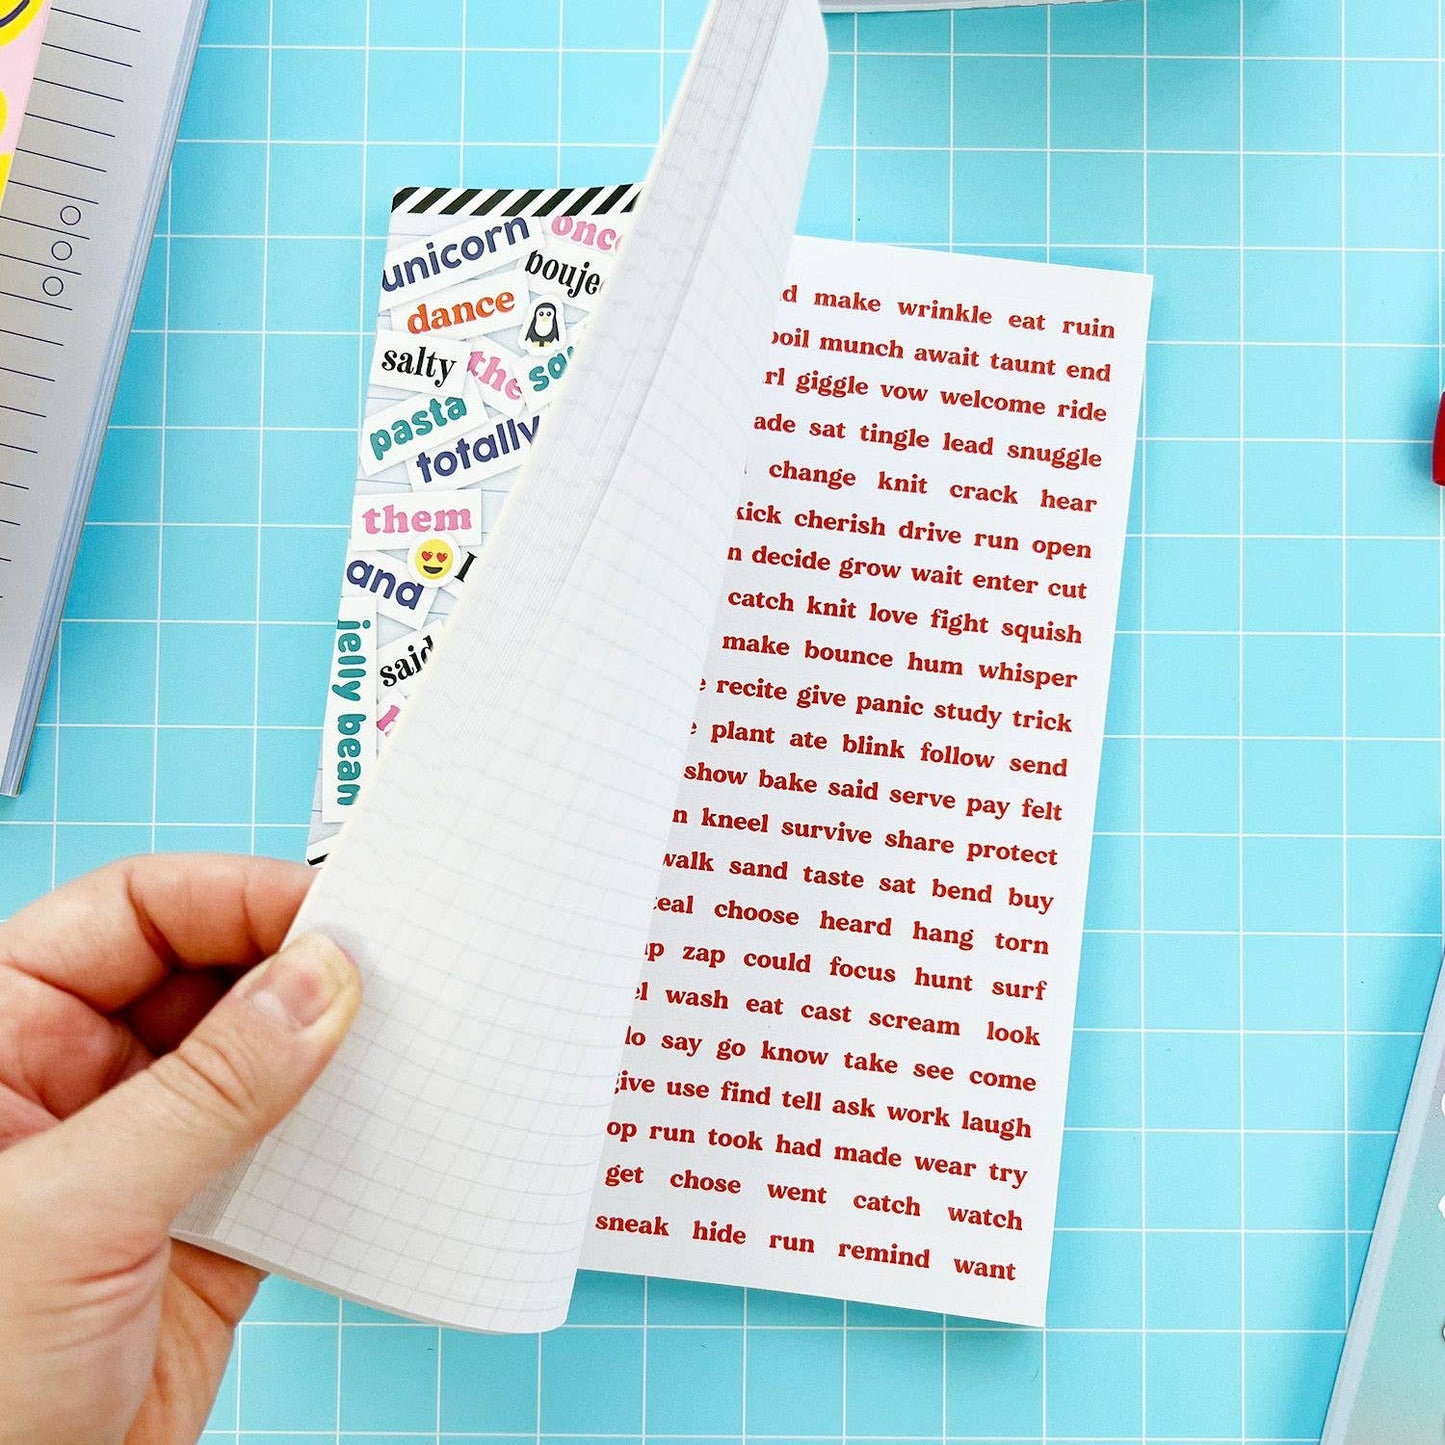 unicorn
once
dance
salty
the
pasta
totally
them
and
I
jelly bean
said
make wrinkle eat ruin
munch await taunt end
giggle vow welcome ride
sat tingle lead snuggle
change knit crack hear
kick cherish drive run open
decide grow wait enter cut
catch knit love fight squish
make bounce hum whisper
recite give panic study trick
plant ate blink follow send
show bake said serve pay felt
kneel survive share protect
walk sand taste sat bend buy
choose heard hang torn
zap could focus hunt surf
wash eat cast scream look
do say go know take see come
give use find tell ask work laugh
run took had made wear try
get chose went catch watch
sneak hide run remind want